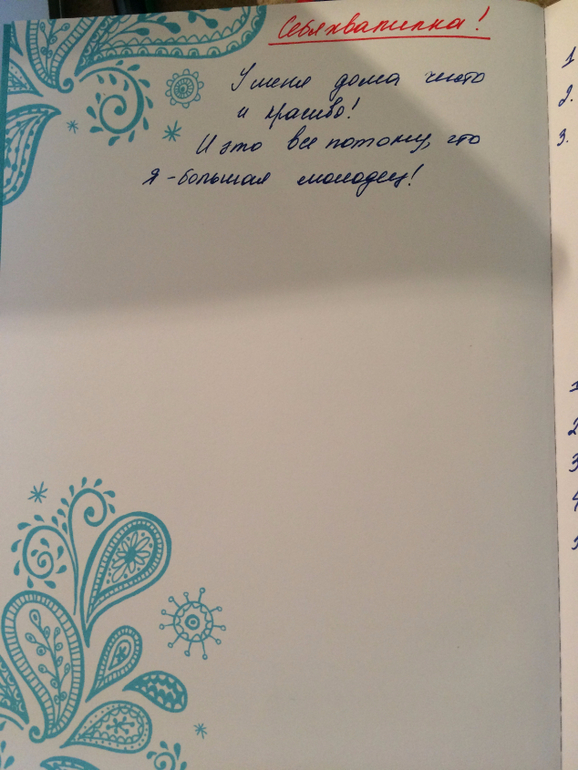 Себяхвалилка!
У меня дома чисто
и красиво!
И это все потому, что
Я - большая молодец!
1
2.
3.
1
2
3
4
5